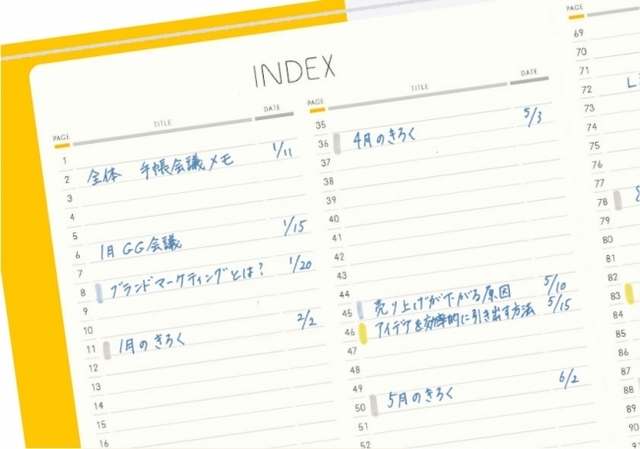 INDEX
PAGE TITLE DATE
1
2 全体 手帳会議メモ 1/11
3
4
5
6 1月GG会議 1/15
7
8 ブランドマーケティングとは? 1/20
9
10
11 1月のきろく 2/2
12
13
14
15
16
PAGE TITLE DATE
35
36 4月のきろく 5/3
37
38
39
40
41
42
43
44
45 売り上げが下がる原因 5/10
46 アイデアを効率的に引き出す方法 5/15
47
48
49
50 5月のきろく 6/2
51
52
PAGE
69
70
71
72 L
73
74
75
76
77
78
79
80
81
82
83
84
85
86
87
88
89
90
91